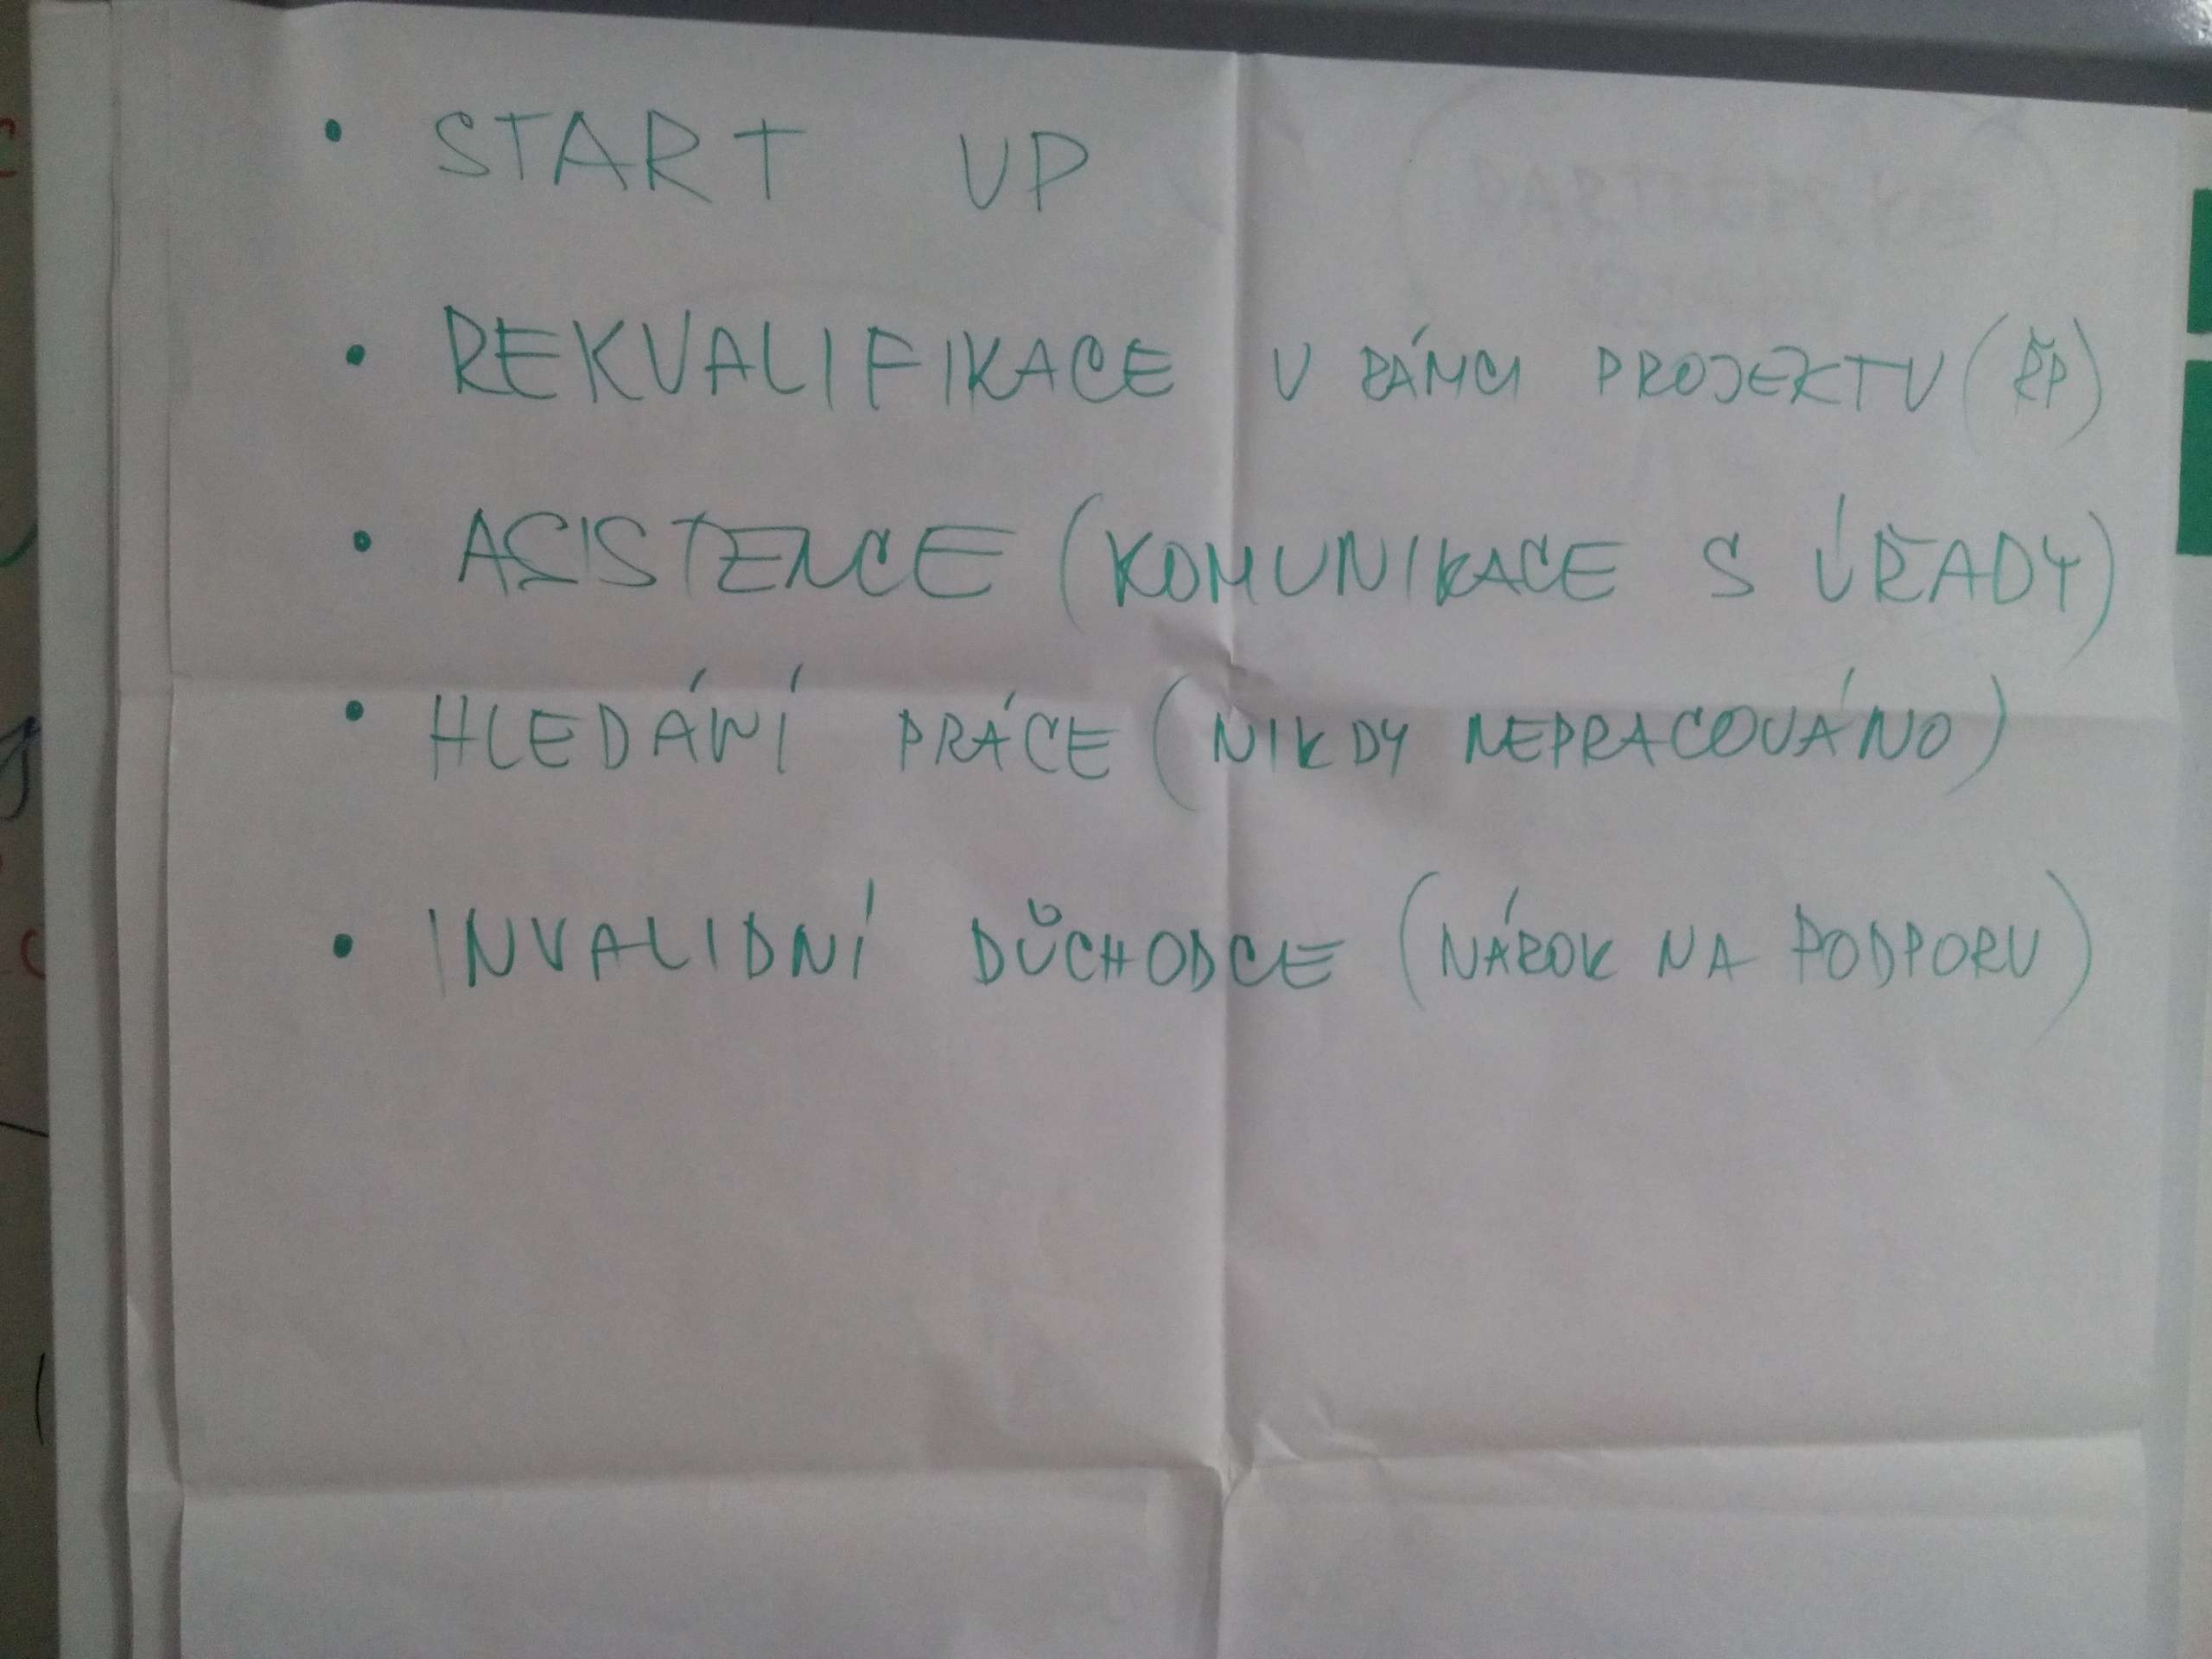 • START UP
• REKVALIFIKACE V RÁMCI PROJEKTU (ŘP)
• ASISTENCE (KOMUNIKACE S ÚŘADY)
• HLEDÁNÍ PRÁCE (NIKDY NEPRACOVÁNO)
• INVALIDNÍ DŮCHODCE (NÁROK NA PODPORU)